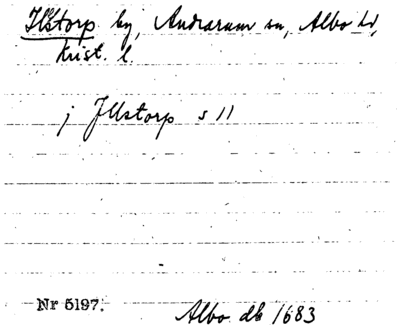 Illstorp by, Andrarum sn, Albo hd,
Krist. l.
j Jllstorp s 11
Nr 5197.
Albo db 1683